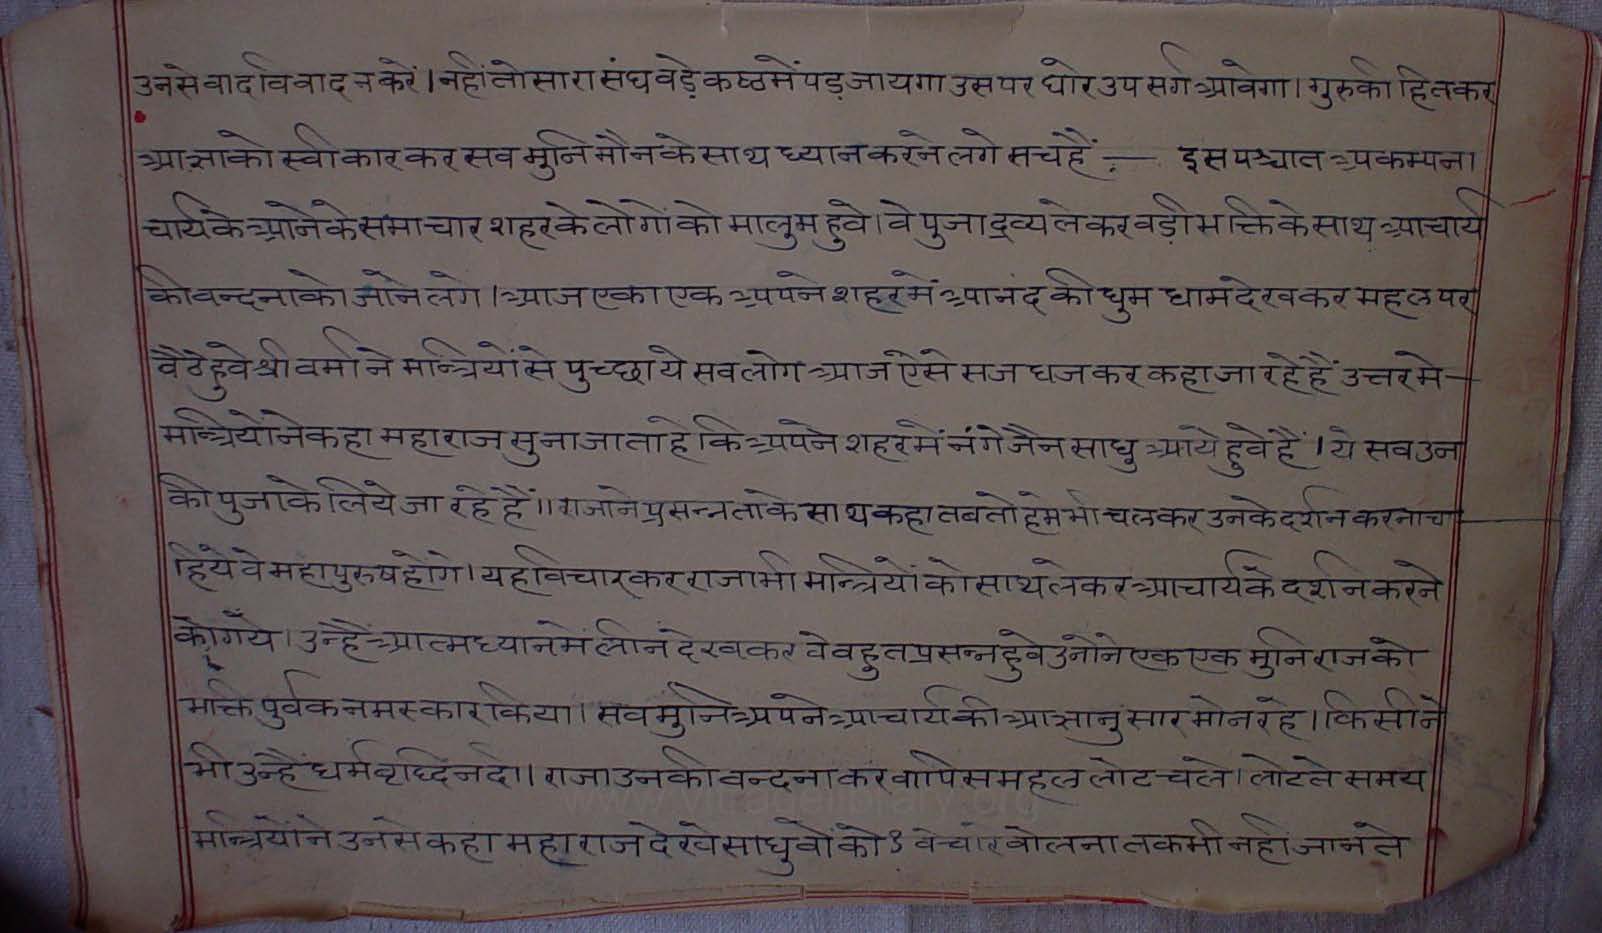 उनसे वाद विवाद न करें। नहीं तो सारा संघ वड़े कष्ठ में पड़ जायगा उस पर घोर उपसर्ग आवेगा। गुरु की हितकर
आज्ञा को स्वीकार कर सव मुनि मौन के साथ ध्यान करने लगे सच हैं :— इस पश्चात अकम्पना
चार्य के आने के समाचार शहर के लोगों को मालुम हुवे। वे पुजा द्रव्य लेकर वड़ी भक्ति के साथ आचार्य
की वन्दना को जाने लगे। आज एकाएक अपने शहर में आनंद की धुम धाम देखकर महल पर
वैठे हुवे श्री वर्मा ने मन्त्रियों से पुच्छा ये सव लोग आज ऐसे सज धज कर कहा जा रहे हैं उत्तर मे—
मन्त्रियों ने कहा महाराज सुना जाता हे कि अपने शहर में नंगे जैन साधु आये हुवे हैं। ये सव उन
की पुजा के लिये जा रहे हैं॥ राजा ने प्रसन्नता के साथ कहा तब तो हमे भी चलकर उनके दर्शन करना चा—
हिये वे महापुरुष होंगे। यह विचार कर राजा भी मन्त्रियों को साथ लेकर आचार्य के दर्शन करने
को गये। उन्हैं आत्मध्यान में लीन देखकर वे वहुत प्रसन्न हुवे उनोने एक एक मुनिराज को
भक्ति पुर्वक नमस्कार किया। सव मुनि अपने आचार्य की आज्ञानुसार मोन रहे। किसीने
भी उन्हैं धर्मवृध्दि न दी। राजा उनकी वन्दना कर वापिस महल लोट चले। लोटते समय
मन्त्रियों ने उनसे कहा महाराज देखे साधुवों को? वेचारे वोलना तक भी नहीं जानते
www.vitragelibrary.org